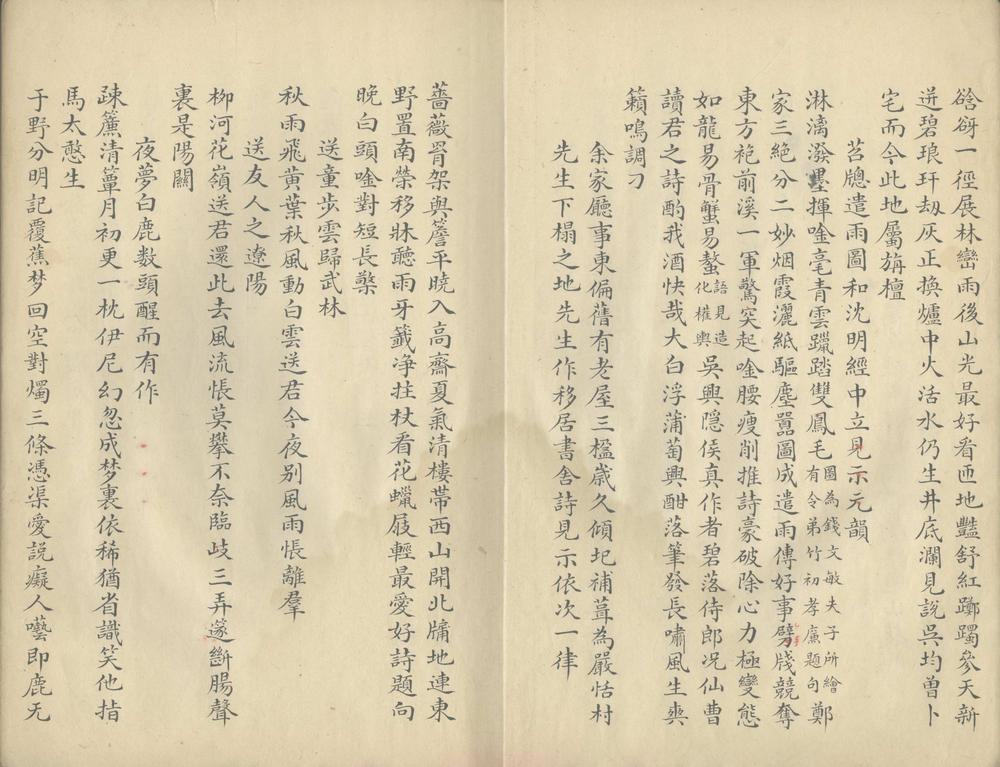 谽谺一徑展林巒雨後山光最好看匝地豔舒紅躑躅參天新
迸碧琅玕刼灰正換爐中火活水仍生井底瀾見說吳均曾卜
宅而今此地屬旃檀
苕牕遣雨圖和沈明經中立見示元韻
淋漓潑墨揮唫毫青雲躐踏雙鳳毛圖為錢文敏夫子所繪有令弟竹初孝廉題句鄭
家三絕分二妙烟霞灑紙驅塵囂圖成遣雨傳好事劈牋競奪
東方袍前溪一軍驚突起唫腰瘦削推詩豪破除心力極變態
如龍易骨蟹易螯語見造化權輿吳興隱侯真作者碧落侍郎况仙曹
讀君之詩酌我酒快哉大白浮蒲萄興酣落筆發長嘯風生爽
籟鳴調刁
余家廳事東偏舊有老屋三楹歲久傾圯補葺為嚴恬村
先生下榻之地先生作移居書舍詩見示依次一律
薔薇罥架與簷平曉入高齋夏氣清樓帶西山開北牖地連東
野置南榮移牀聽雨牙籤净拄杖看花蠟屐輕最愛好詩題向
晚白頭唫對短長檠
送童步雲歸武林
秋雨飛黃葉秋風動白雲送君今夜别風雨悵離羣
送友人之遼陽
柳河花嶺送君還此去風流悵莫攀不奈臨歧三弄篴斷腸聲
裏是陽關
夜夢白鹿数頭醒而有作
疎簾清簟月初更一枕伊尼幻忽成梦裏依稀猶省識笑他指
馬太憨生
于野分明記覆蕉梦回空對燭三條憑渠愛說癡人囈即鹿无